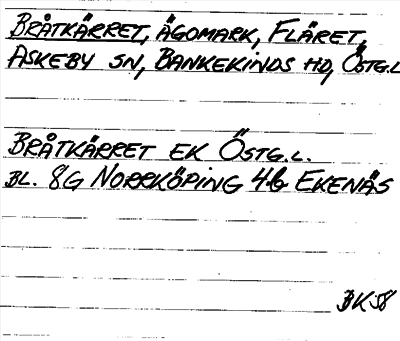 BRÅTKÄRRET, ÄGOMARK, FLÄRET,
ASKEBY SN, BANKEKINDS HD, ÖSTG.L
BRÅTKÄRRET EK ÖSTG.L.
BL. 8G NORRKÖPING 4b EKENÄS
BK58